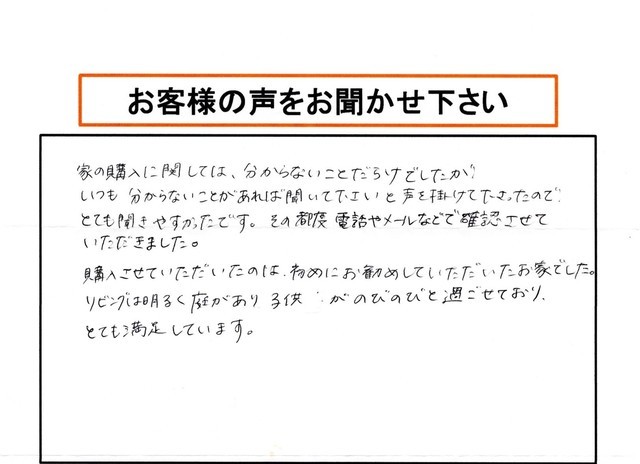 お客様の声をお聞かせ下さい
家の購入に関しては、分からないことだらけでしたが
いつも分からないことがあれば聞いて下さいと声を掛けて下さったので
とても聞きやすかったです。その都度電話やメールなどで確認させて
いただきました。
購入させていただいたのは、初めにお勧めしていただいたお家でした。
リビングは明るく庭があり子供がのびのびと過ごせており、
とても満足しています。